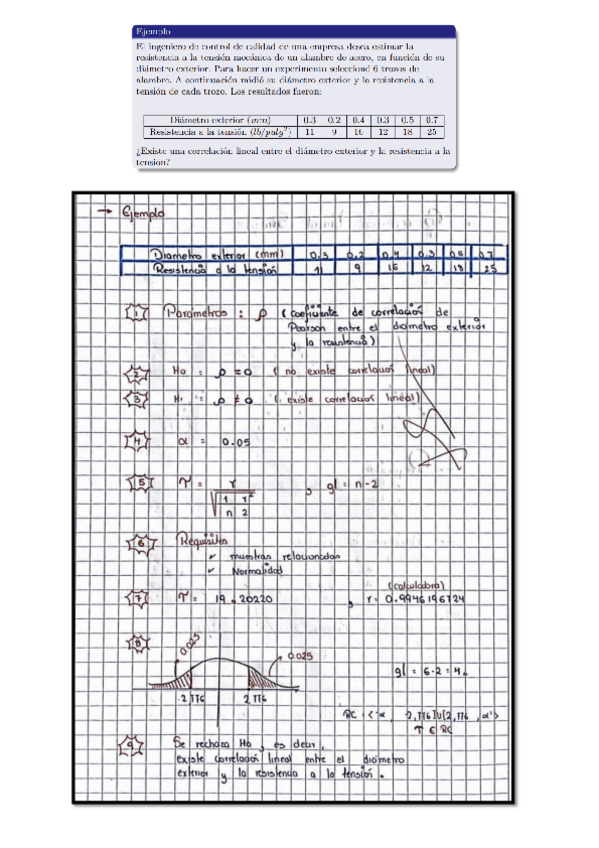 Ejemplo
El ingeniero de control de calidad de una empresa desea estimar la
resistencia a la tensión mecánica de un alambre de acero, en función de su
diámetro exterior. Para hacer un experimento seleccionó 6 trozos de
alambre. A continuación midió su diámetro exterior y la resistencia a la
tensión de cada trozo. Los resultados fueron:
Diámetro exterior (mm) 0.3 0.2 0.4 0.3 0.5 0.7
Resistencia a la tensión (lb/pulg²) 11 9 16 12 18 25
¿Existe una correlación lineal entre el diámetro exterior y la resistencia a la
tensión?
→ Ejemplo
Diametro exterior (mm) 0.3 0.2 0.4 0.3 0.5 0.7
Resistencia a la tensión 11 9 16 12 18 25
1 Parametros : ρ (coeficiente de correlación de
Pearson entre el diametro exterior
y la resistencia)
2 Ho = ρ = 0 (no existe correlación lineal)
3 H1 = ρ ≠ 0 (existe correlación lineal)
4 α = 0.05
5 T = r / √(1 - r² / n - 2) , gl = n-2
6 Requisitos
✓ muestras relacionadas
✓ Normalidad
(calculadora)
7 T = 19.20220 , r = 0.9946196724
8 0.025 0.025
gl = 6-2 = 4
-2,776 2,776
RC = <-α, -2,776]U[2,776, α>
T ∈ RC
9 Se rechaza Ho, es decir,
existe correlación lineal entre el diámetro
exterior y la resistencia a la tensión.